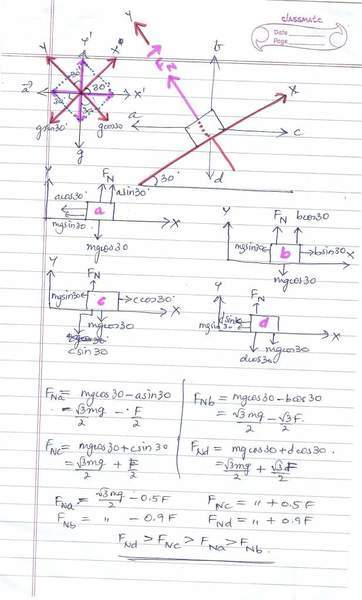 classmate
Date
Page
Y Y' X
a X'
30°
gsin30° gcos30
g
Y FN b
X
a c
d
30°
Y FN asin30°
acos30°
a X
mgsin30
mgcos30
Y FN bcos30
mgsin30 b bsin30 X
mgcos30
Y FN
mgsin30 c ccos30
X
mgcos30
csin30
Y FN
mgsin30 d X
mgcos30
dcos30
FNa = mgcos30 - asin30
= √3mg/2 - F/2
FNb = mgcos30 - bcos30
= √3mg/2 - √3F/2
FNc = mgcos30 + csin30
= √3mg/2 + F/2
FNd = mgcos30 + dcos30.
= √3mg/2 + √3F/2
FNa = √3mg/2 - 0.5F FNc = " + 0.5F
FNb = " - 0.9F FNd = " + 0.9F
FNd > FNc > FNa > FNb.